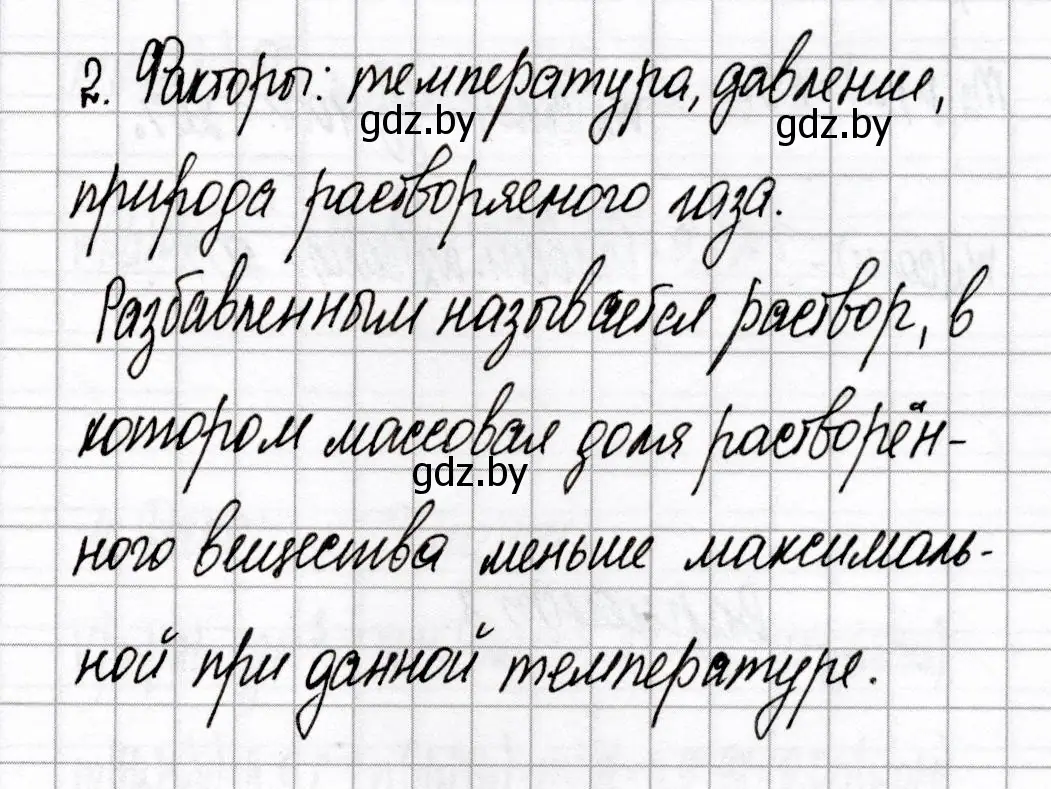 2. Факторы: температура, давление,
gdz.by
gdz.by
природа растворяемого газа.
Разбавленным называется раствор, в
котором массовая доля растворён-
gdz.by
ного вещества меньше максималь-
ной при данной температуре.